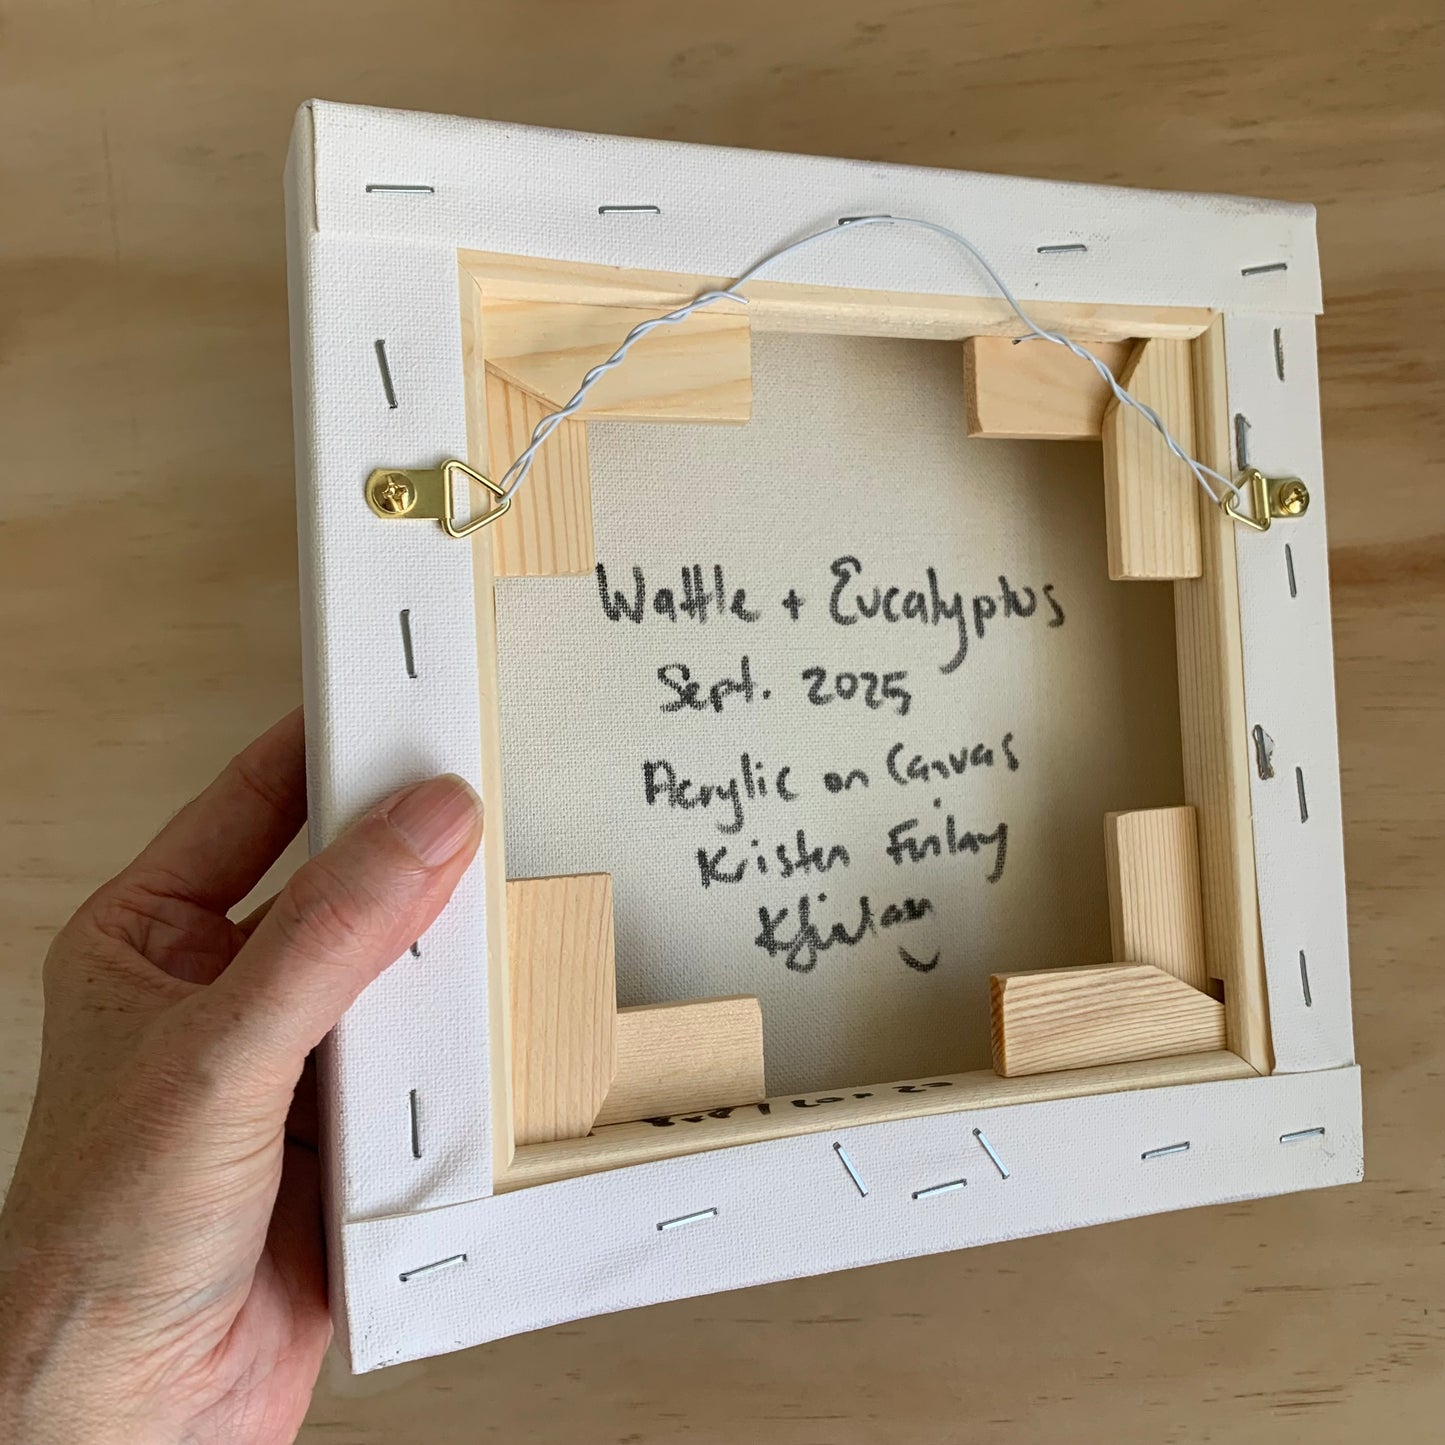 Wattle + Eucalyptus
Sept. 2025
Acrylic on Canvas
Kristen Finlay